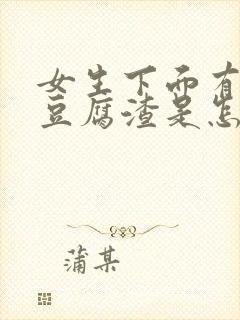 女生下而有
豆腐渣是怎
蒲某